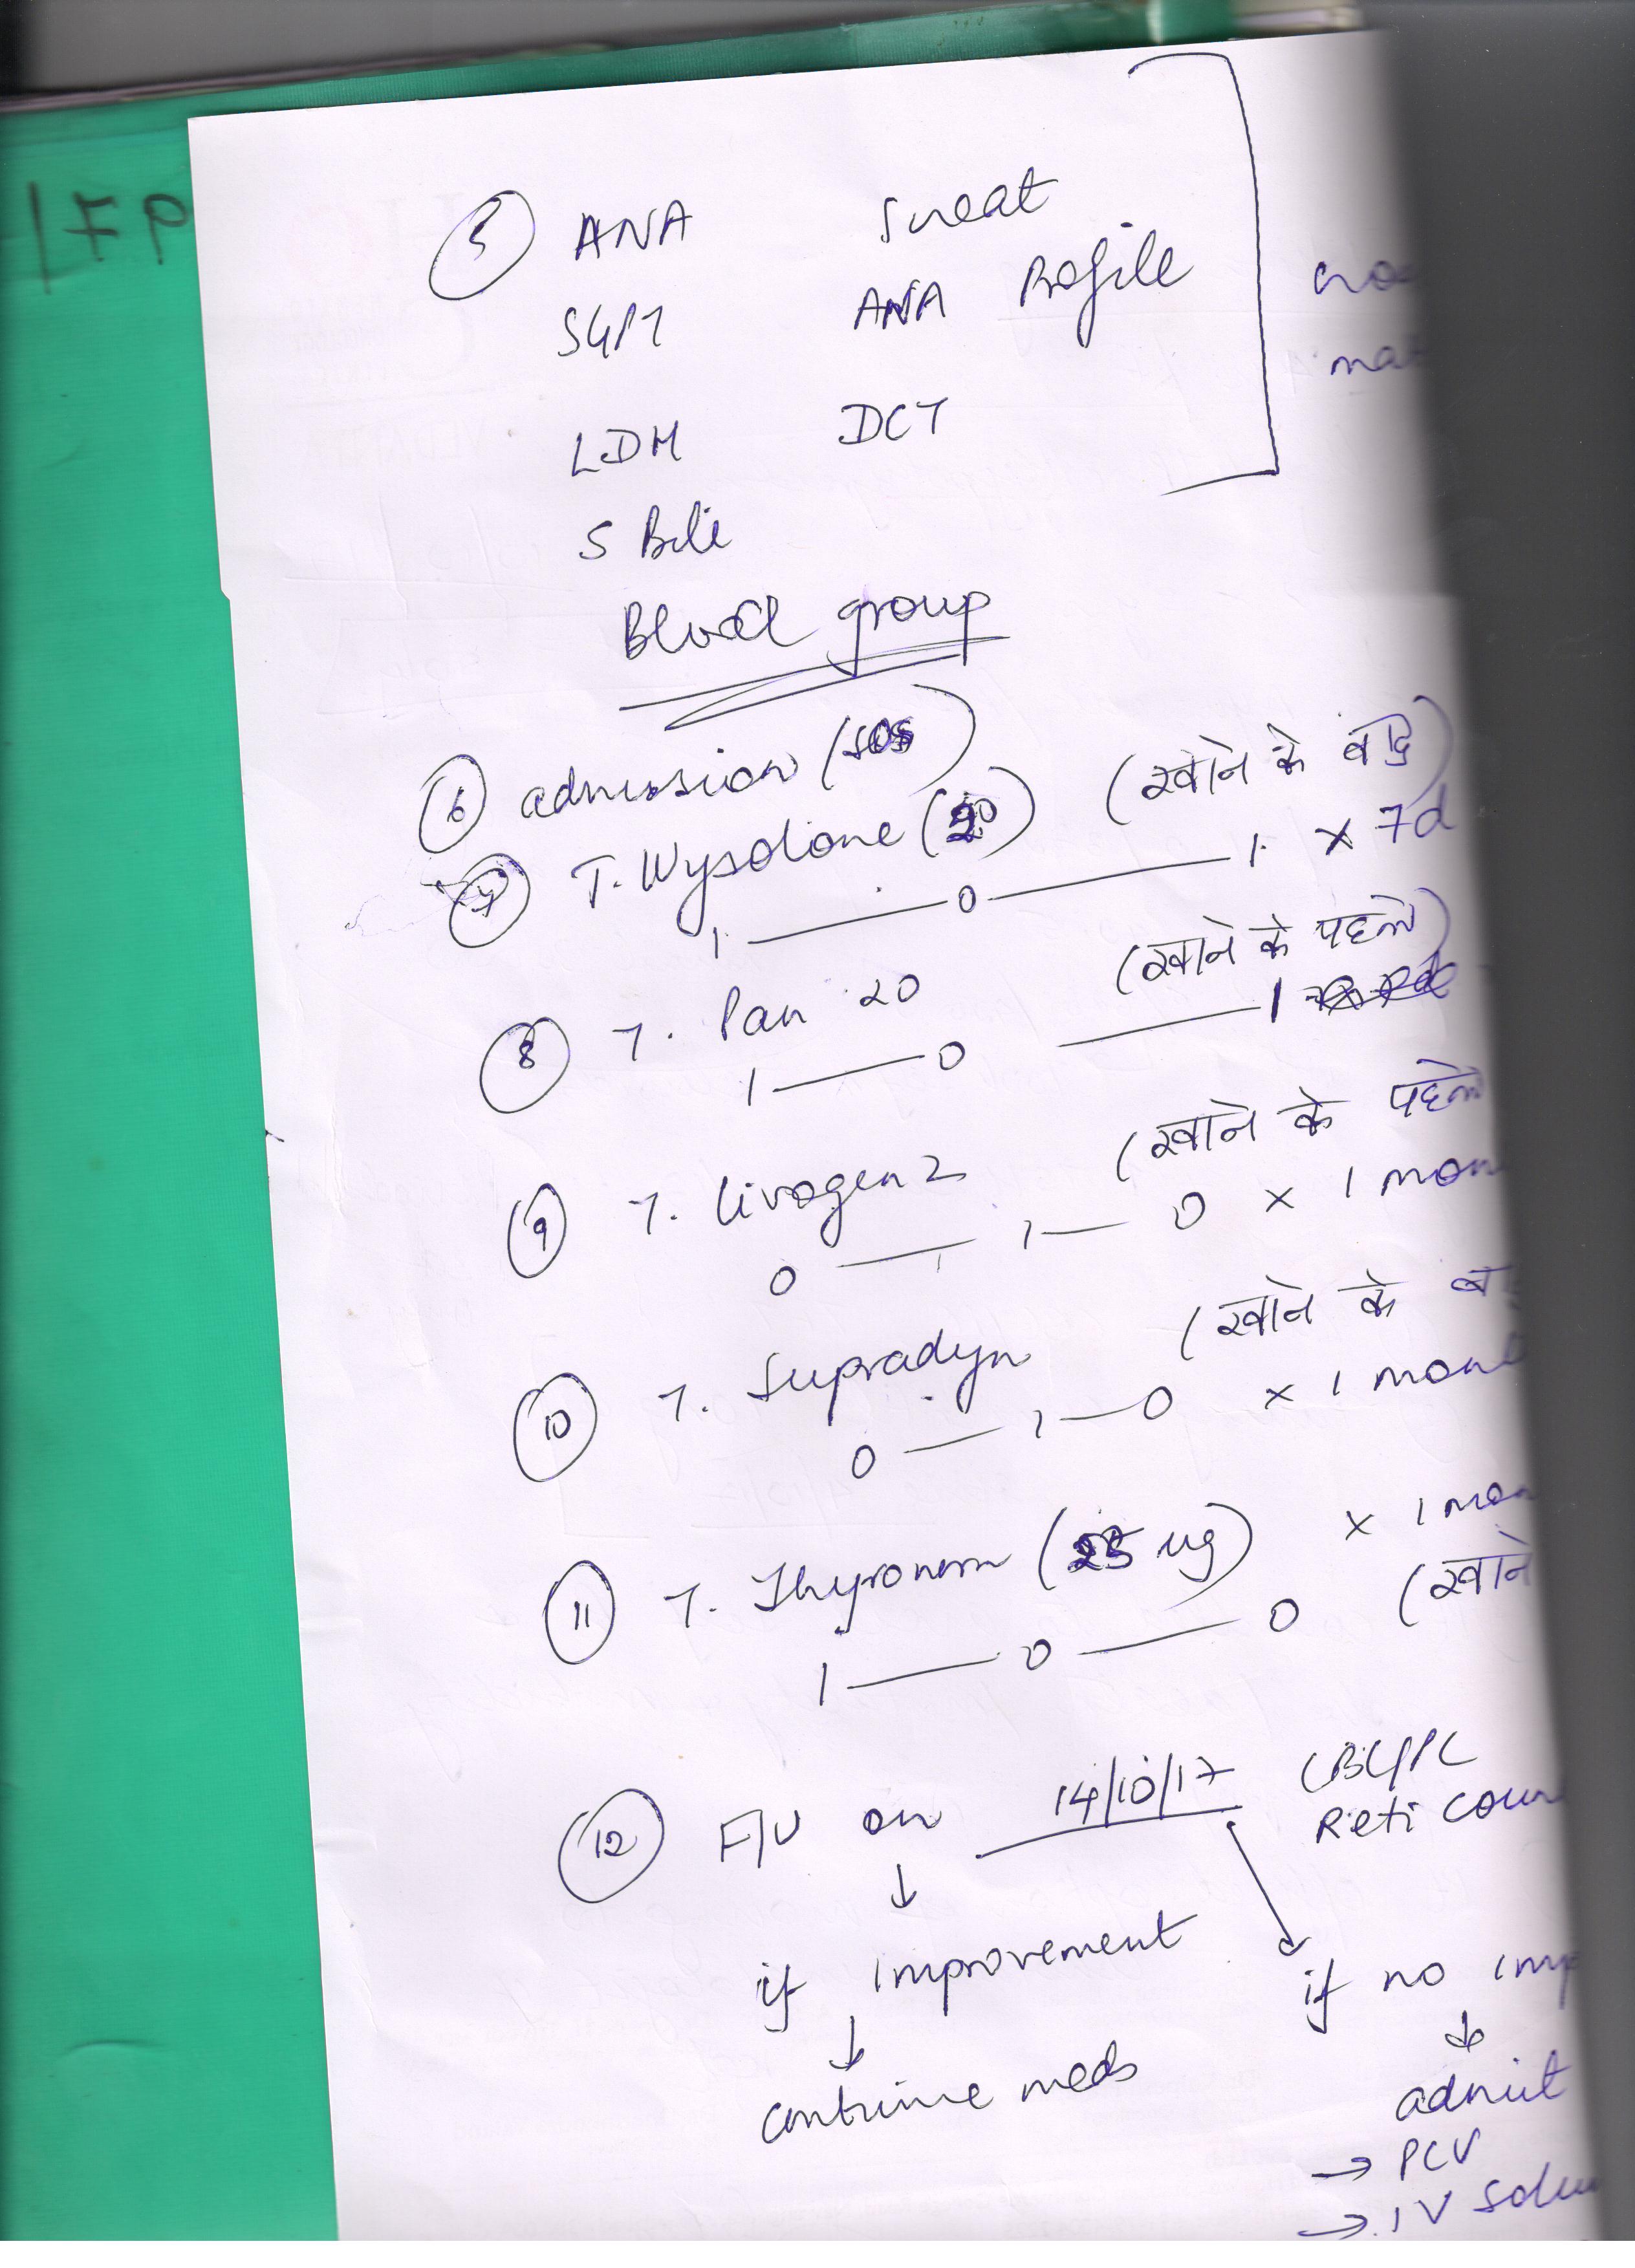 LFP
⑤ ANA S Creat
SGPT ANA Profile
LDH DCT
S Bili
Blood group
⑥ admission (SOS)
⑦ T. Wysolone (20) (खाने के बाद)
1 — 0 — 1 x 7d
⑧ T. Pan 20 (खाने के पहले)
1 — 0 — 1
⑨ T. Livogen Z (खाने के पहले
0 — 1 — 0 x 1 mon
⑩ T. Supradyn (खाने के
0 — 1 — 0 x 1 mon
⑪ T. Thyronorm (25 ug) x 1 mon
1 — 0 — 0 (खाने
⑫ F/U on 14/10/17 CBC/PC
Reti coun
↓
if improvement if no imp
↓ ↓
continue meds admit
→ PCV
→ IV Solu